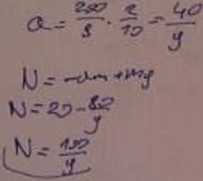 a = 200/9 · 2/10 = 40/9
N = -am + mg
N = 20 - 80/9
N = 100/9